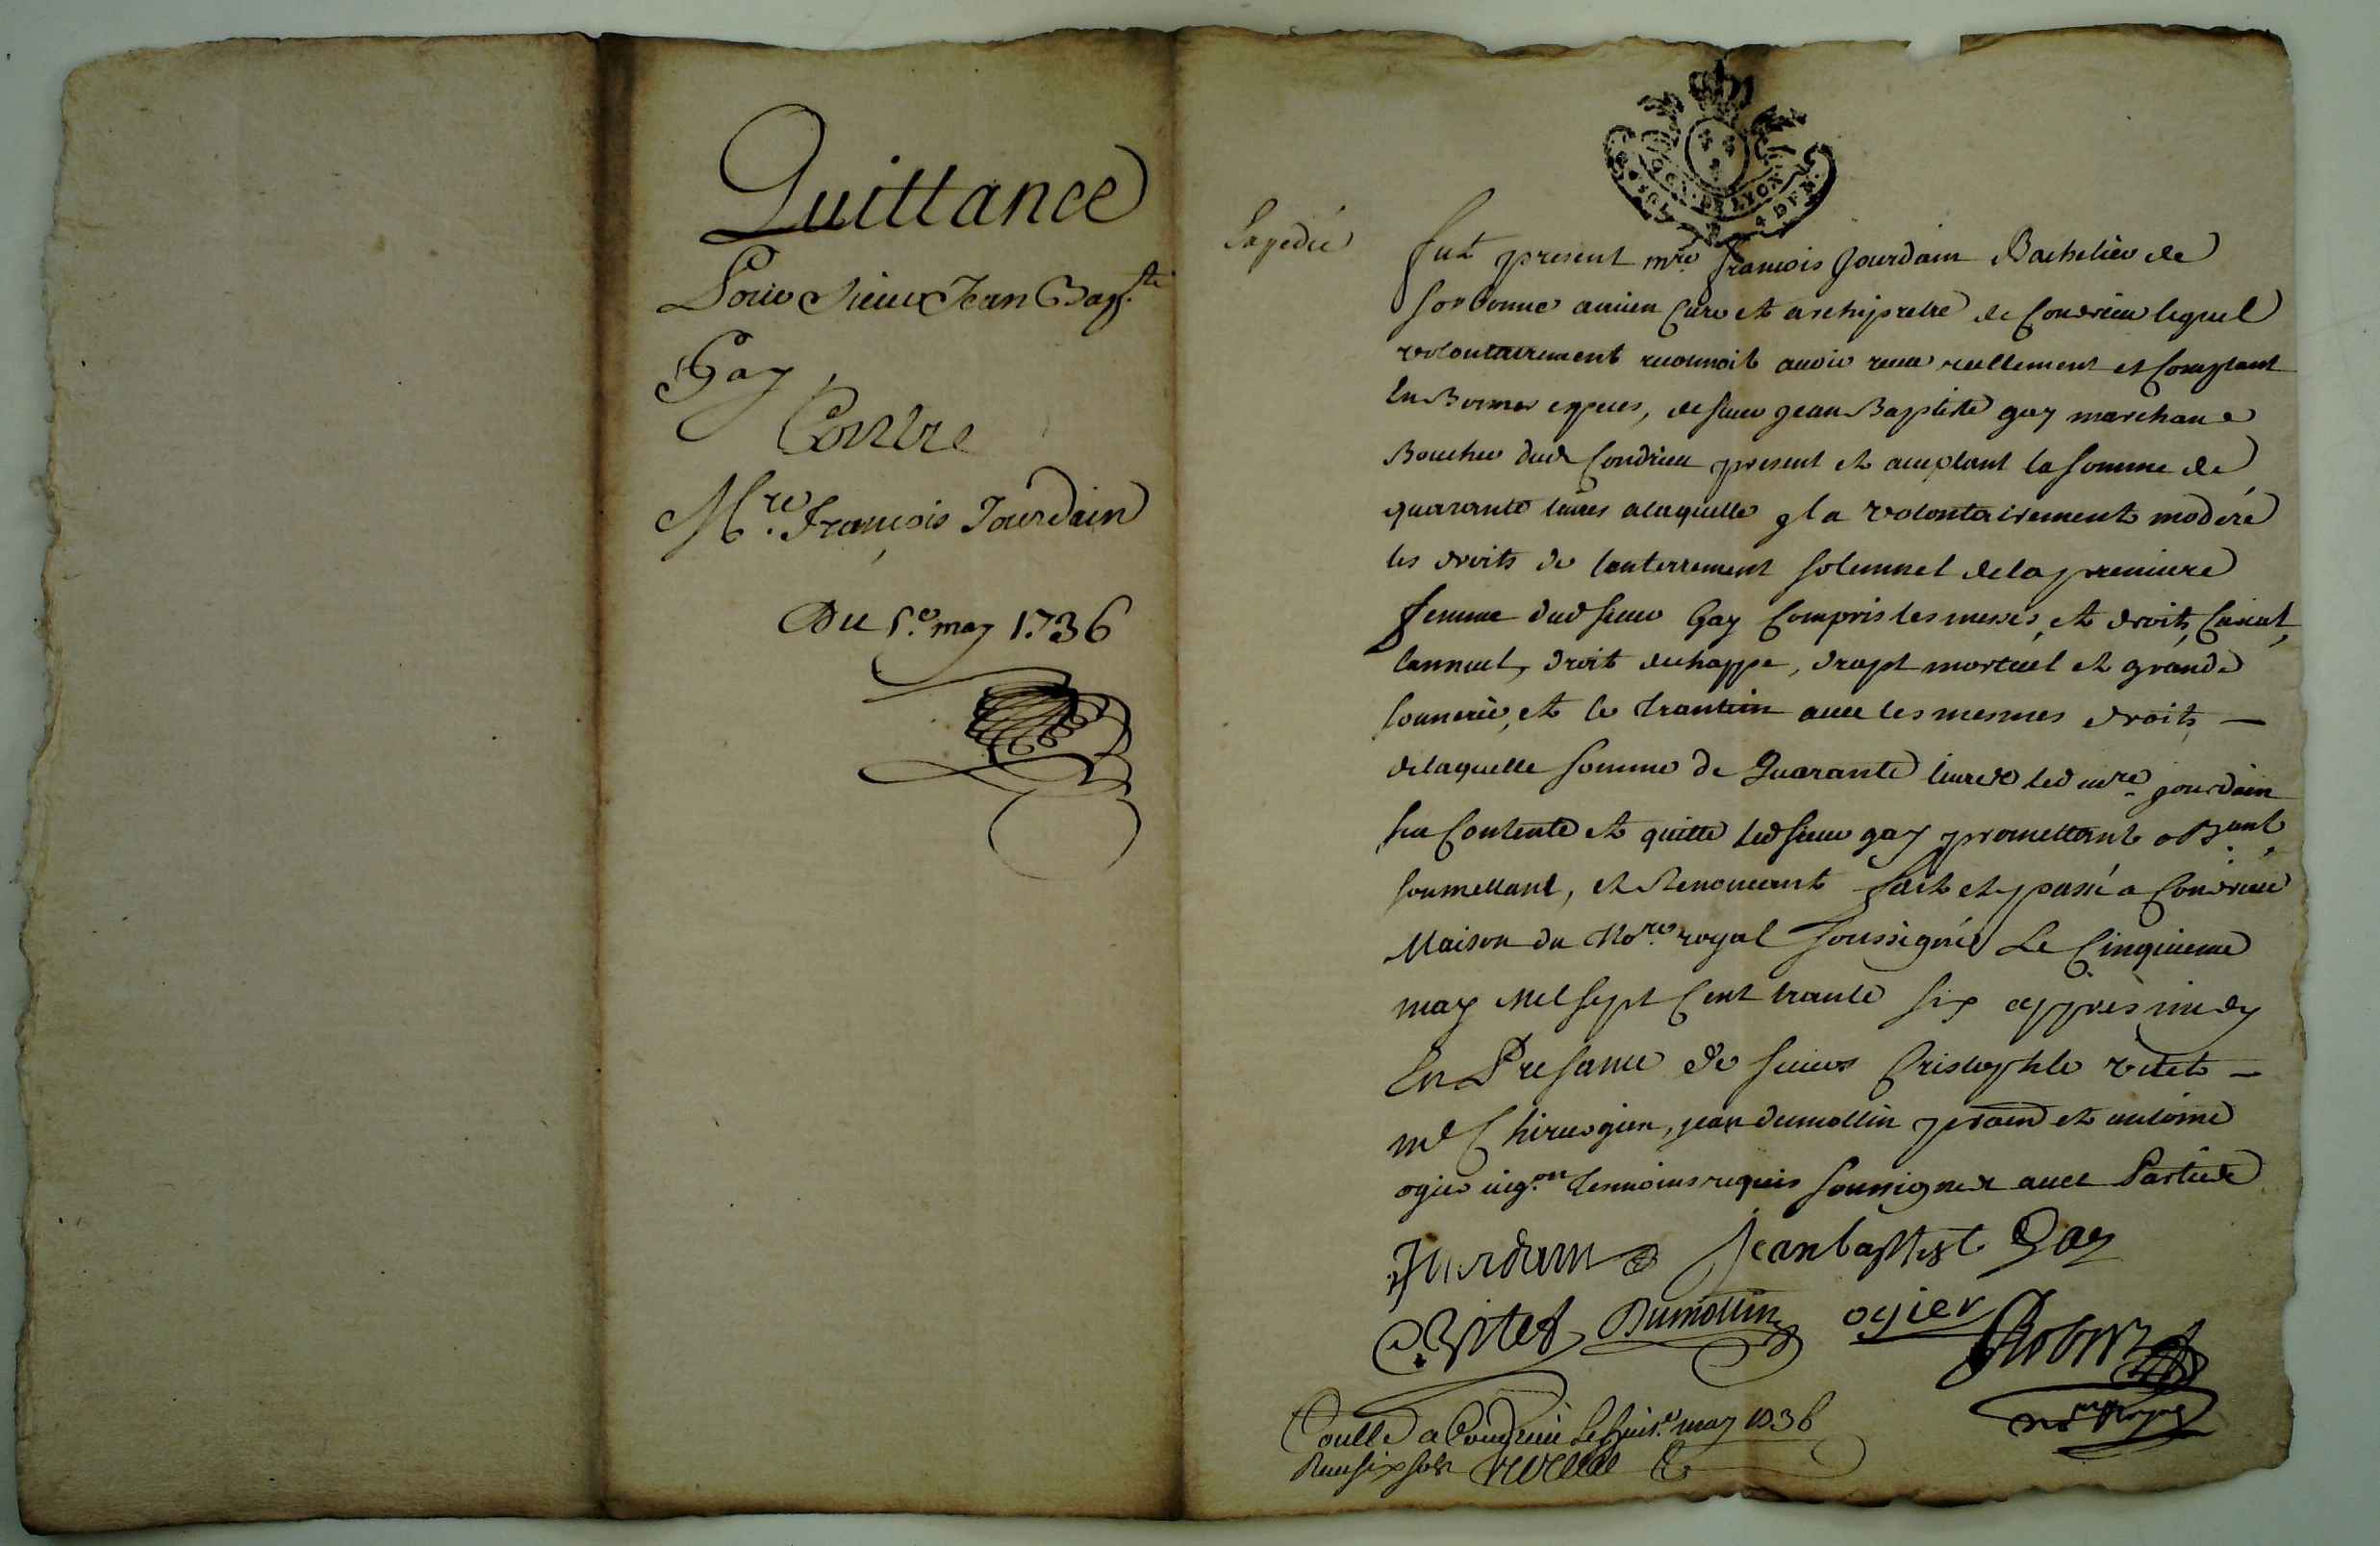 Quittance
Pour Sieur Jean Bap.te
Gay
Contre
M.re François Jourdain
Du 5.e may 1736
GEN. DE LYON
4 DEN.
Expedié
fut present m.re françois Jourdain Bachelier de
sorbonne ancien Curé et archipretre de Condrieu lequel
volontairement reconnoit auoir receu reellement et Comptant
En Bonnes especes, de sieur jean Baptiste gay marchand
Boucher dud Condrieu present et acceptant la somme de
quarante liures a laquelle jl a volontairement modéré
les droits de lenterrement solemnel de la premiere
femme dud sieur Gay Compris les messes, et droits, Curial,
lannuel, droit de chappe, drapt mortuel et grande
sonnerie, et le trantein auec les mesmes droits —
de laquelle somme de Quarante liures led m.re jourdain
sen Contente et quitte led sieur gay promettant obg.ant
soumettant, et Renonceant fait et passé a Condrieu
Maison du No.re royal soussigné Le Cinquieme
may mil sept Cent trante six appres midy
En Presance de sieurs Cristophle vitet —
m.e Chirurgien, jean dumollin et antoine
ogier vig.on temoins requis soussignez auec Parties
Jurdain Jean baptist Gay
C. Vitet Dumollin ogier
no.re Royal
Coulle a Condrieu le huit.e may 1736
Receu six sols